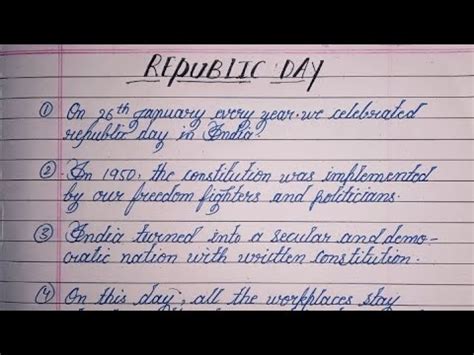 REPUBLIC DAY
① On 26th January every year, we celebrated
republic day in India.
② In 1950, the constitution was implemented
by our freedom fighters and politicians.
③ India turned into a secular and demo-
cratic nation with written constitution.
④ On this day, all the workplaces stay